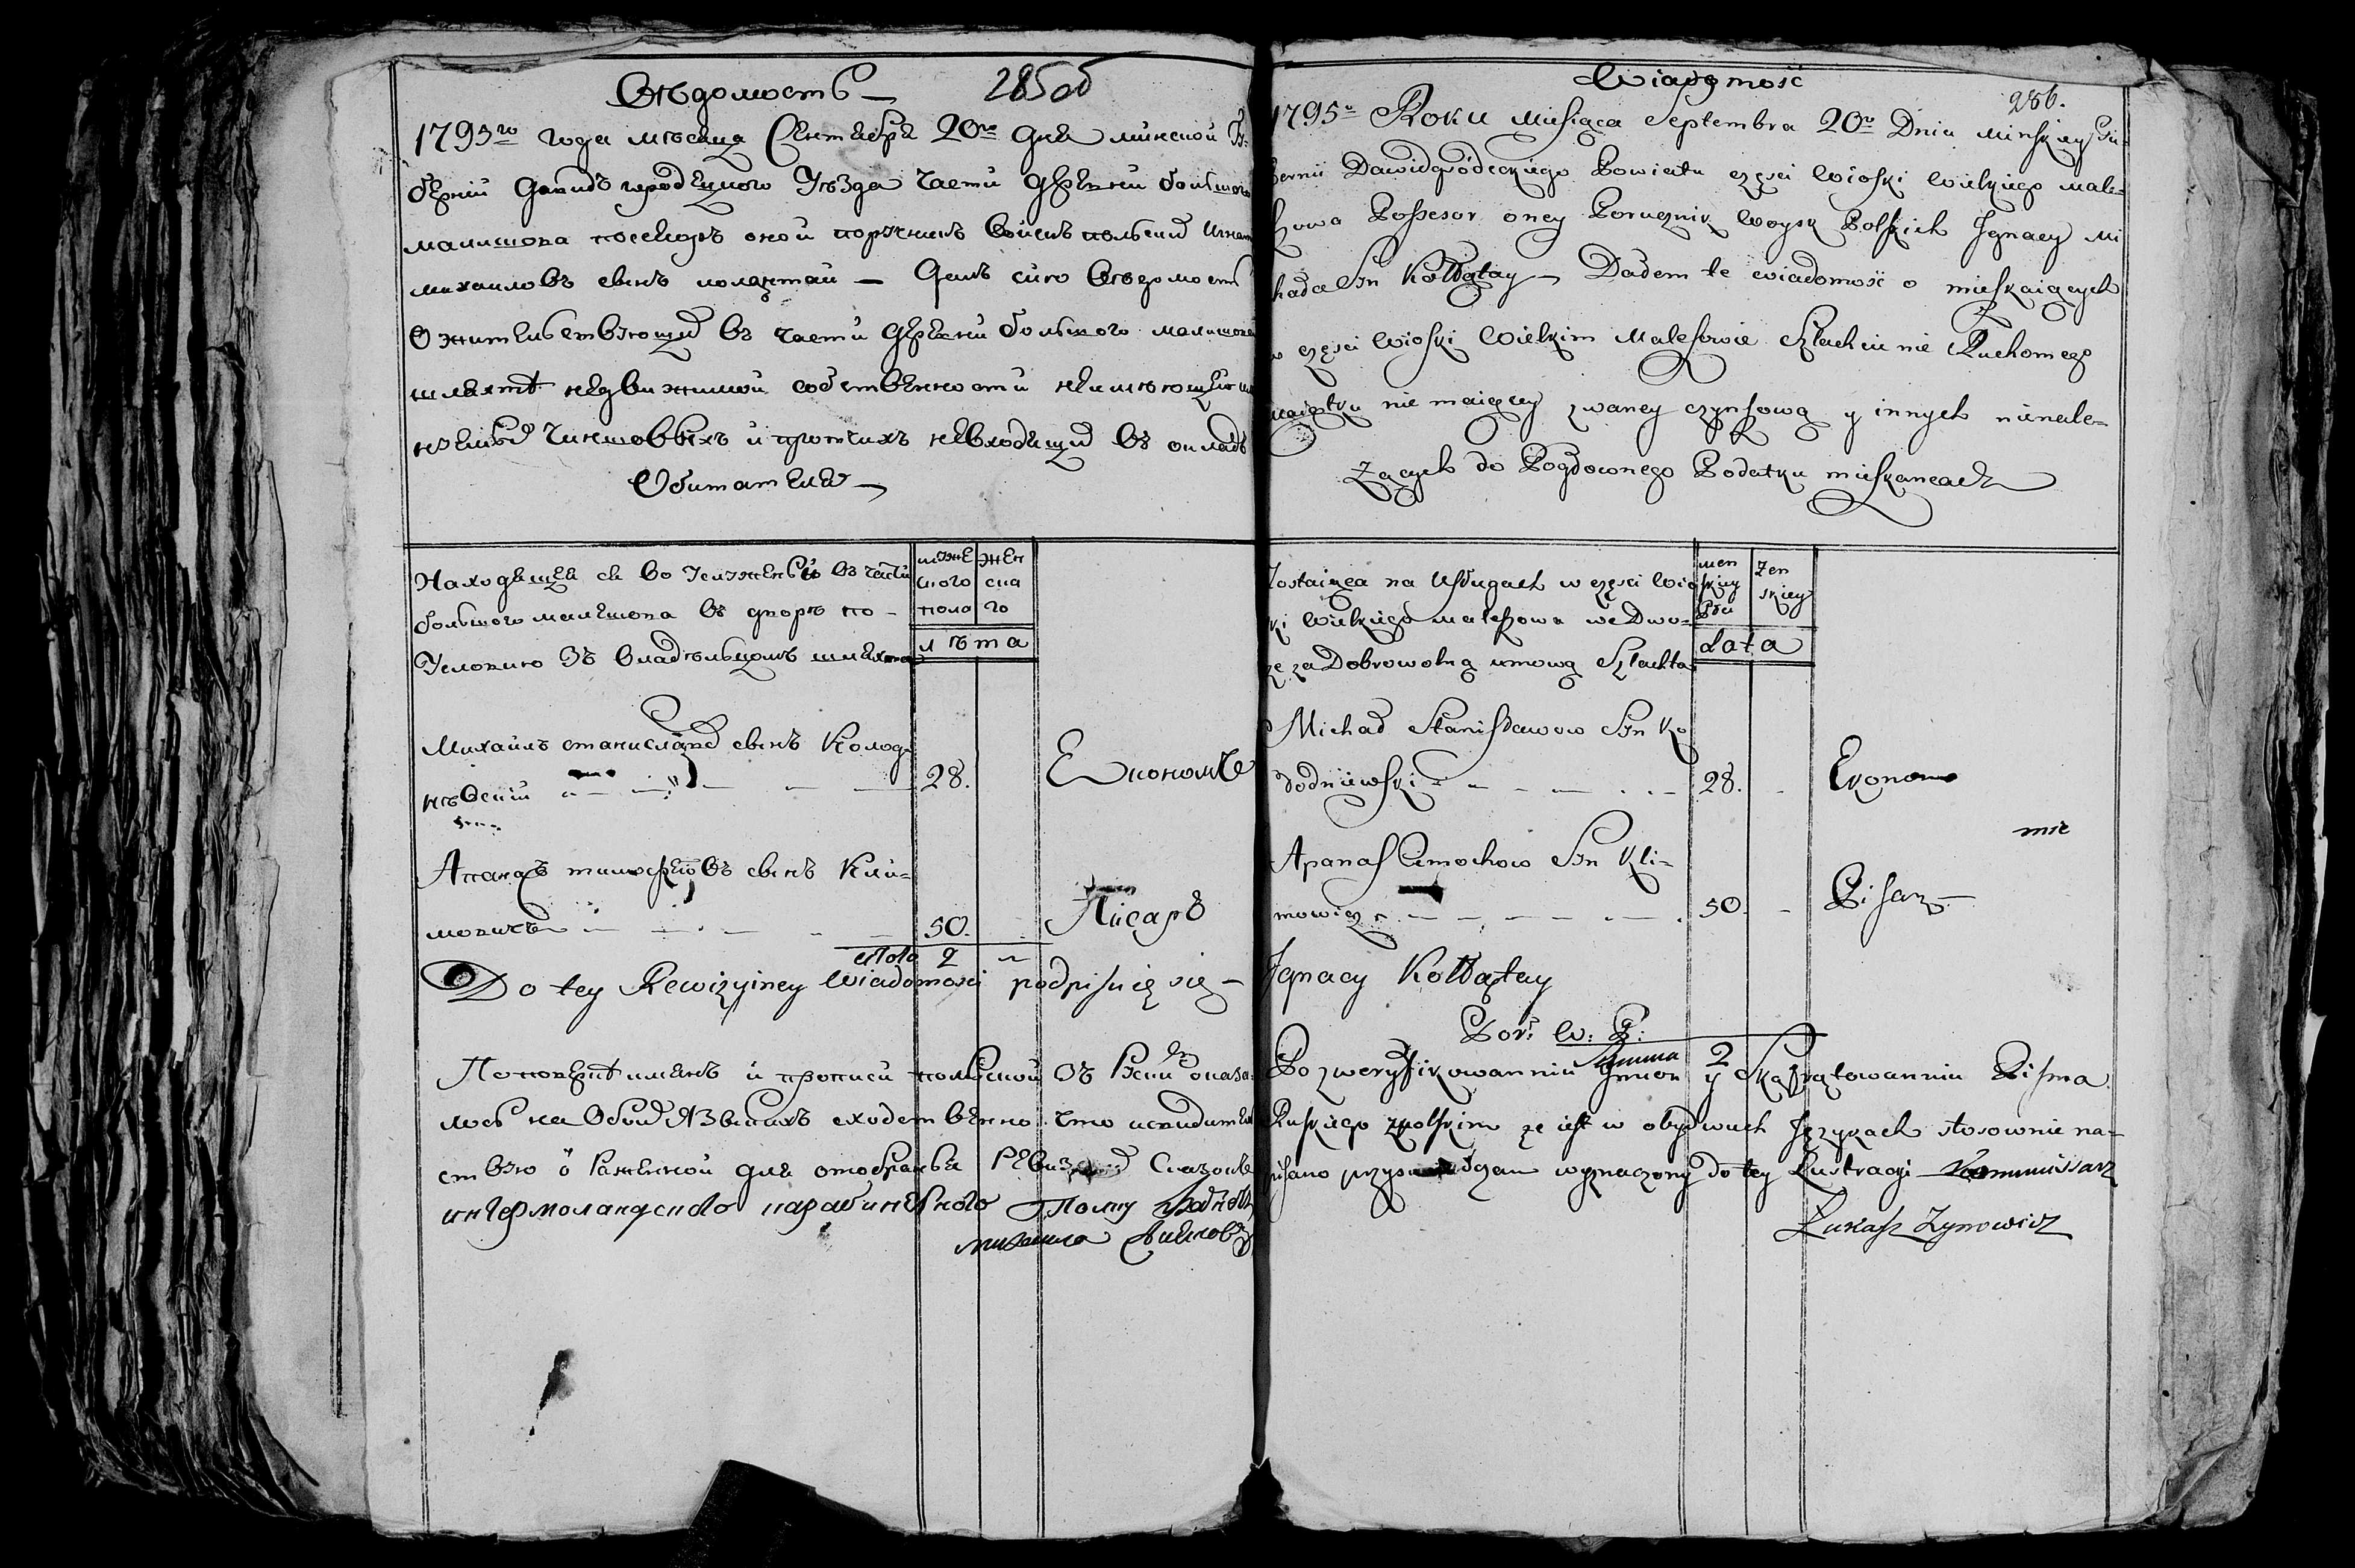 Вѣдомость — 285об
1795го года мѣсяца Сентебря 20го дня минской Гу=
берніи Давидъ городецкого Уѣзда части деревни большого
малешова посесоръ оной поручикъ войскъ польскихъ Игнат
михаиловъ сынъ колонтай — Далъ сию вѣдомость
О жительствующихъ въ части деревни большого малешова
шляхте недвижимой собственности неимѣющей
называемыхъ чиншовыхъ и протчихъ невходящихъ въ окладъ
Обитателей —
Находящея ся во услуженіи въ части
большого малешова въ дворѣ по –
Условию Зъ владѣльцомъ шляхта
муже женъ
ского ска
пола го
лѣта
Михайлъ станиславовъ сынъ Колод-
нѣвскій 28. Економъ
Апанасъ тимофеевъ сынъ Кли=
мовичъ 50. Писарь
итого 2
Do tey Rewizyiney Wiadomosci podpisuię się –
По поверке именъ и прописи польской съ Рускимъ оказа-
лось на Обоихъ Языкахъ сходственно что и свидетель
ствую Наряженной для отобранія Ревизскихъ Сказокъ
ингермоландского карабинернаго Полку
михаила
Wiadomość
286.
1795o Roku Miesiąca Septembra 20o Dnia Minskiey Gu-
bernii Dawidgródeckiego Powiatu części Wioski Wielkiego Male-
szowa Possesor oney Porucznik Woysk Polskich Jgnacy Mi
chała Syn Kołłątay — Dałem te wiadomość o mieszkaiących
w części Wioski Wielkim Maleszowie Szlachcie nie Ruchomego
maiątku nie maiącey zwaney czynszową y innych nienale-
żących do Pogłownego Podatku mieszkancach
Zostaiąca na Usługach w części Wio
ski Wielkiego Maleszowa we Dwo-
rze za Dobrowolną umową Szlachta
men Zen
skiey skiey
Płci
Lata
Michał Stanisławow Syn Ko
łodniewski 28. Ekonom
mie
Apanas Cimochow Syn Kli-
mowicz 50. Pisarz
Jgnacy Kołłątay
Por: W: P:
Summa 2
Po zweryfikowanniu Jmion y Skątrątowanniu Pisma
Ruskiego zpolskim że iest w obydwuch Językach stosownie na-
pisano przyswiadczam wyznaczony do tey Lustracyi Kommissarz
Łukasz Zynowicz